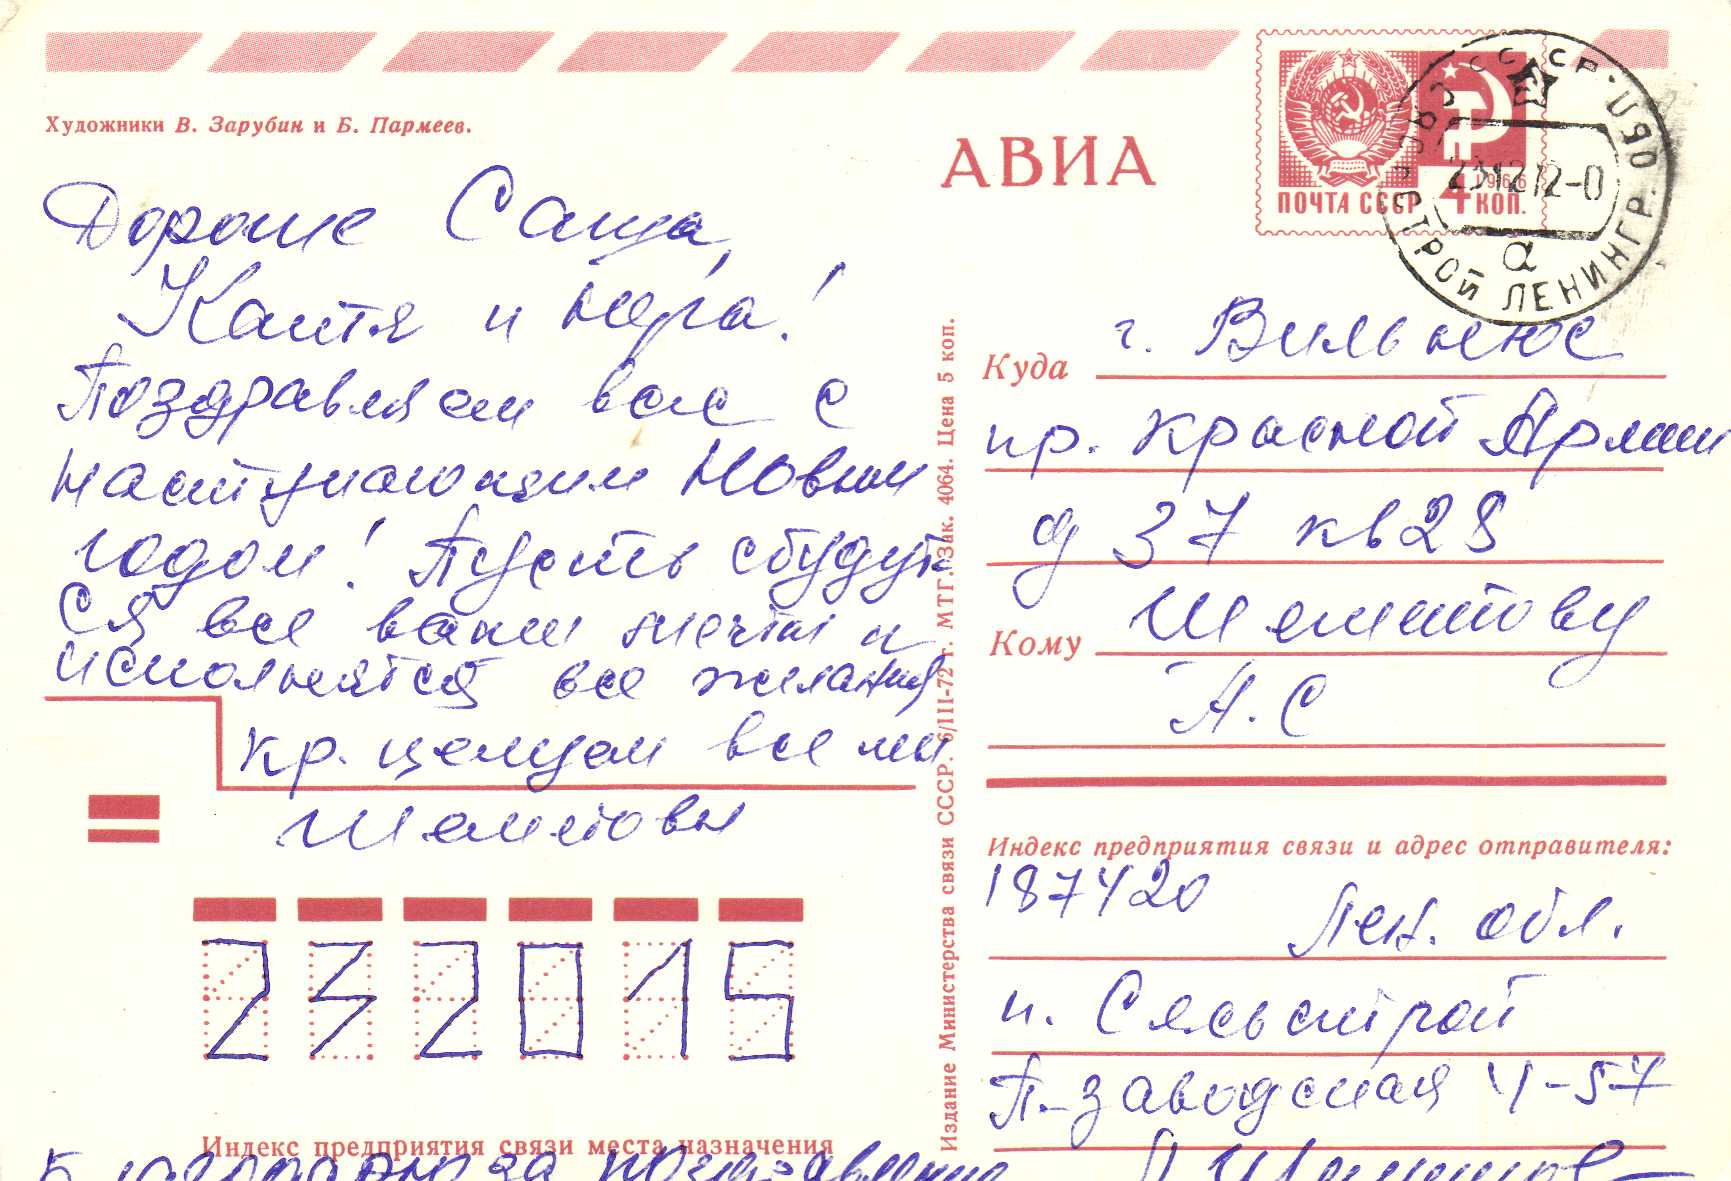 Художники В. Зарубин и Б. Пармеев.
Дорогие Саша,
Катя и Кира!
Поздравляем вас с
наступающим Новым
годом! Пусть сбудут
ся все ваши мечты и
исполнятся все желания
кр. целуем все мы
Шемитовы
232015
Индекс предприятия связи места назначения
за поздравление
Издание Министерства связи СССР. 6/III-72 г. МТГ. Зак. 4064. Цена 5 коп.
АВИА
ПОЧТА СССР 4 КОП.
1966
СЯСЬСТРОЙ ЛЕНИНГР. ОБЛ.
СССР
а
Куда г. Вильнюс
пр. Красной Армии
д 37 кв 28
Кому Шемитову
А. С
Индекс предприятия связи и адрес отправителя:
187420 Лен. обл.
п. Сясьстрой
П-заводская 4-57